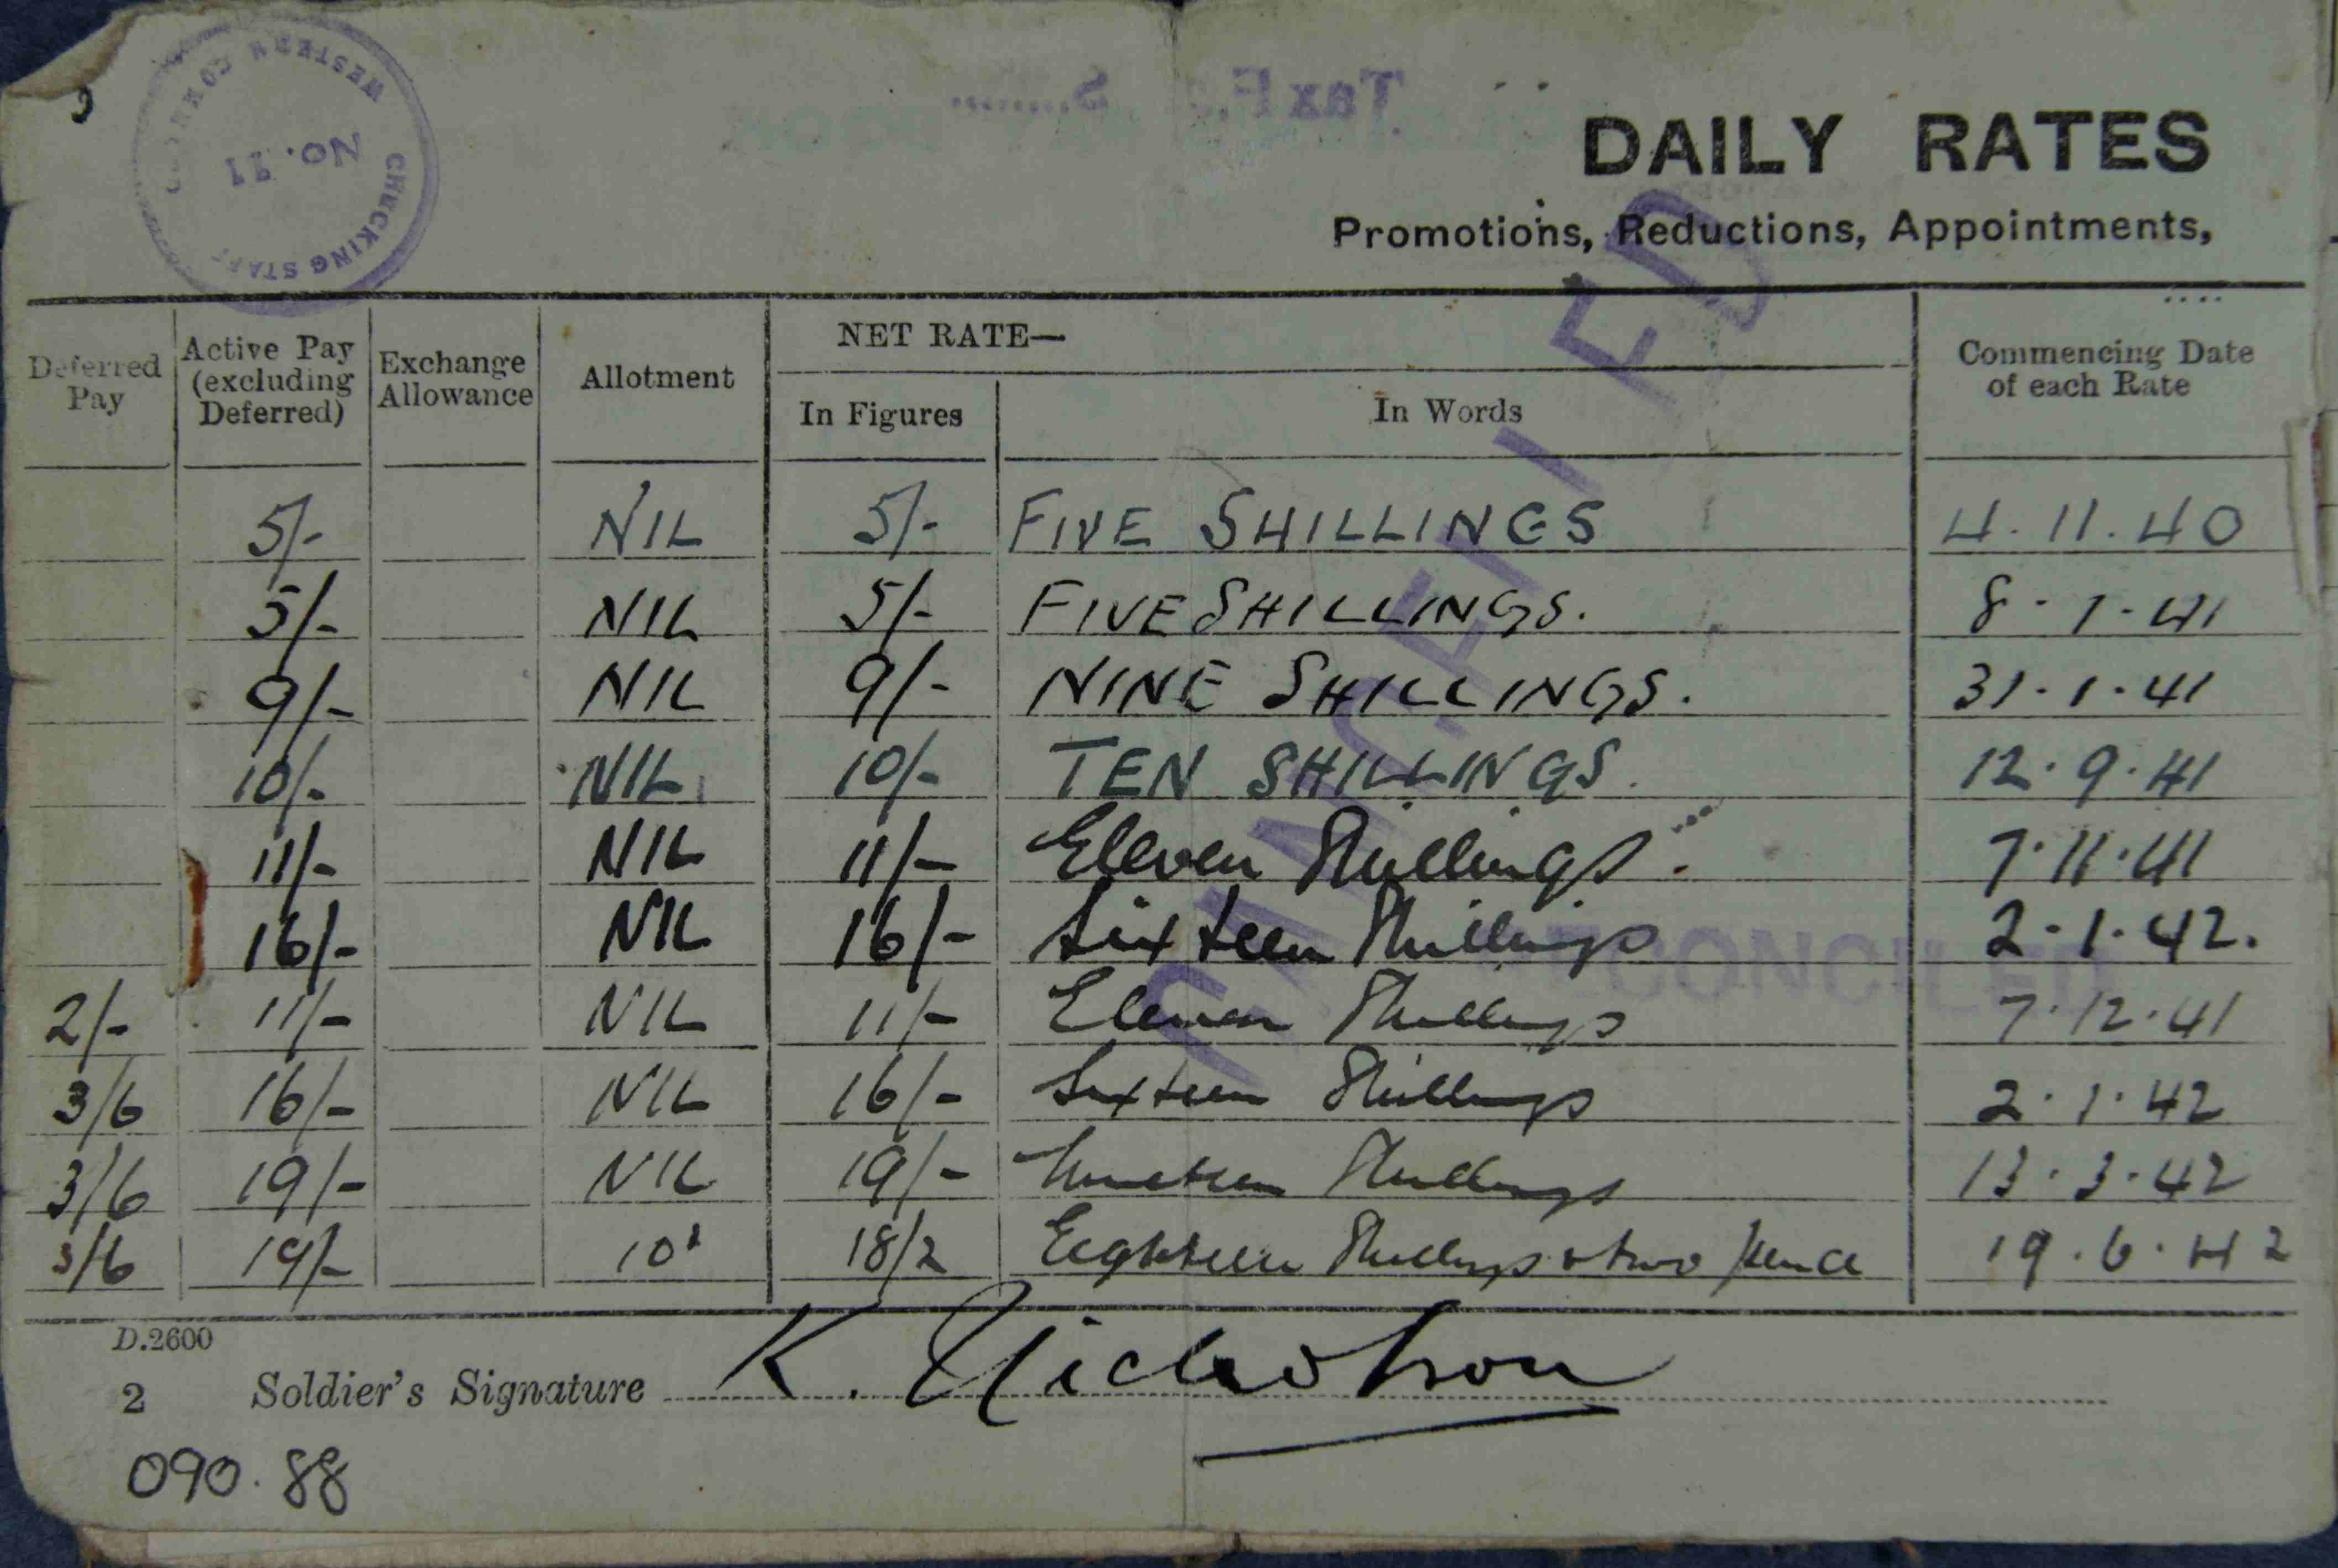 WESTERN COMMAND
No. 11
CHECKING STAFF
Tax F. S.
DAILY RATES
Promotions, Reductions, Appointments,
Deferred Pay | Active Pay (excluding Deferred) | Exchange Allowance | Allotment | NET RATE— In Figures | In Words | Commencing Date of each Rate
5/- NIL 5/- FIVE SHILLINGS 4.11.40
5/- NIL 5/- FIVE SHILLINGS. 8.1.41
9/- NIL 9/- NINE SHILLINGS. 31.1.41
10/- NIL 10/- TEN SHILLINGS. 12.9.41
11/- NIL 11/- Eleven Shillings. 7.11.41
16/- NIL 16/- Sixteen Shillings 2.1.42.
2/- 11/- NIL 11/- Eleven Shillings 7.12.41
3/6 16/- NIL 16/- Sixteen Shillings 2.1.42
3/6 19/- NIL 19/- Nineteen Shillings 13.3.42
3/6 19/- 10' 18/2 Eighteen Shillings & two pence 19.6.42
CANCELLED
RECONCILED
D.2600
2 Soldier's Signature K. Nicholson
090.88